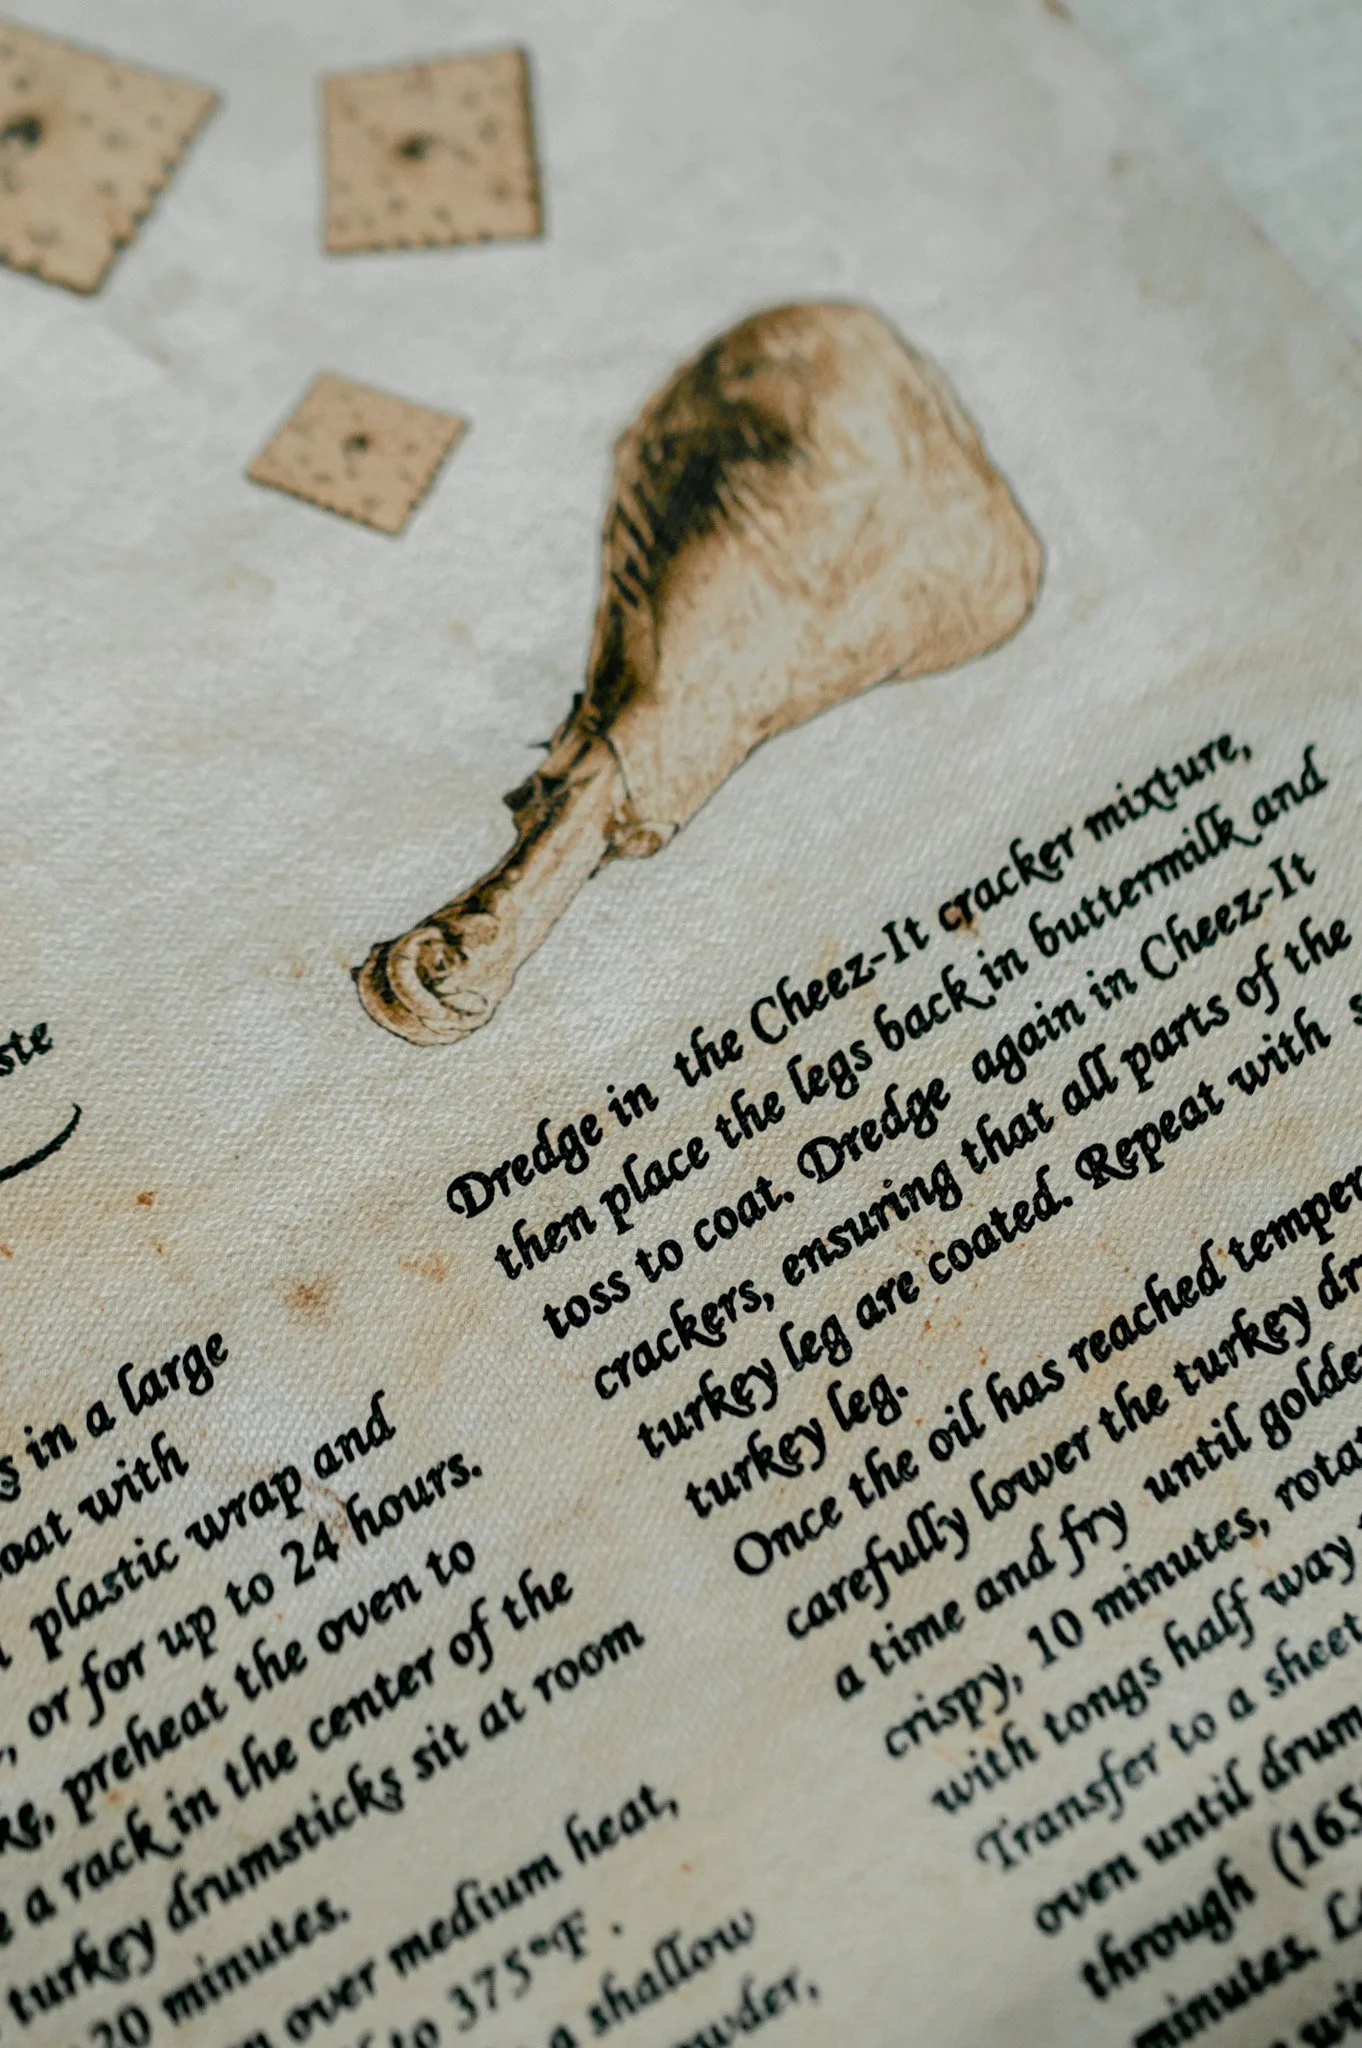 ste
s in a large
oat with
plastic wrap and
, or for up to 24 hours.
ke, preheat the oven to
e a rack in the center of the
turkey drumsticks sit at room
20 minutes.
over medium heat,
to 375°F.
a shallow
owder,
Dredge in the Cheez-It cracker mixture,
then place the legs back in buttermilk and
toss to coat. Dredge again in Cheez-It
crackers, ensuring that all parts of the
turkey leg are coated. Repeat with s
turkey leg.
Once the oil has reached temper
carefully lower the turkey dr
a time and fry until golde
crispy, 10 minutes, rotat
with tongs half way
Transfer to a sheet
oven until drum
through (165
minutes. L
wi